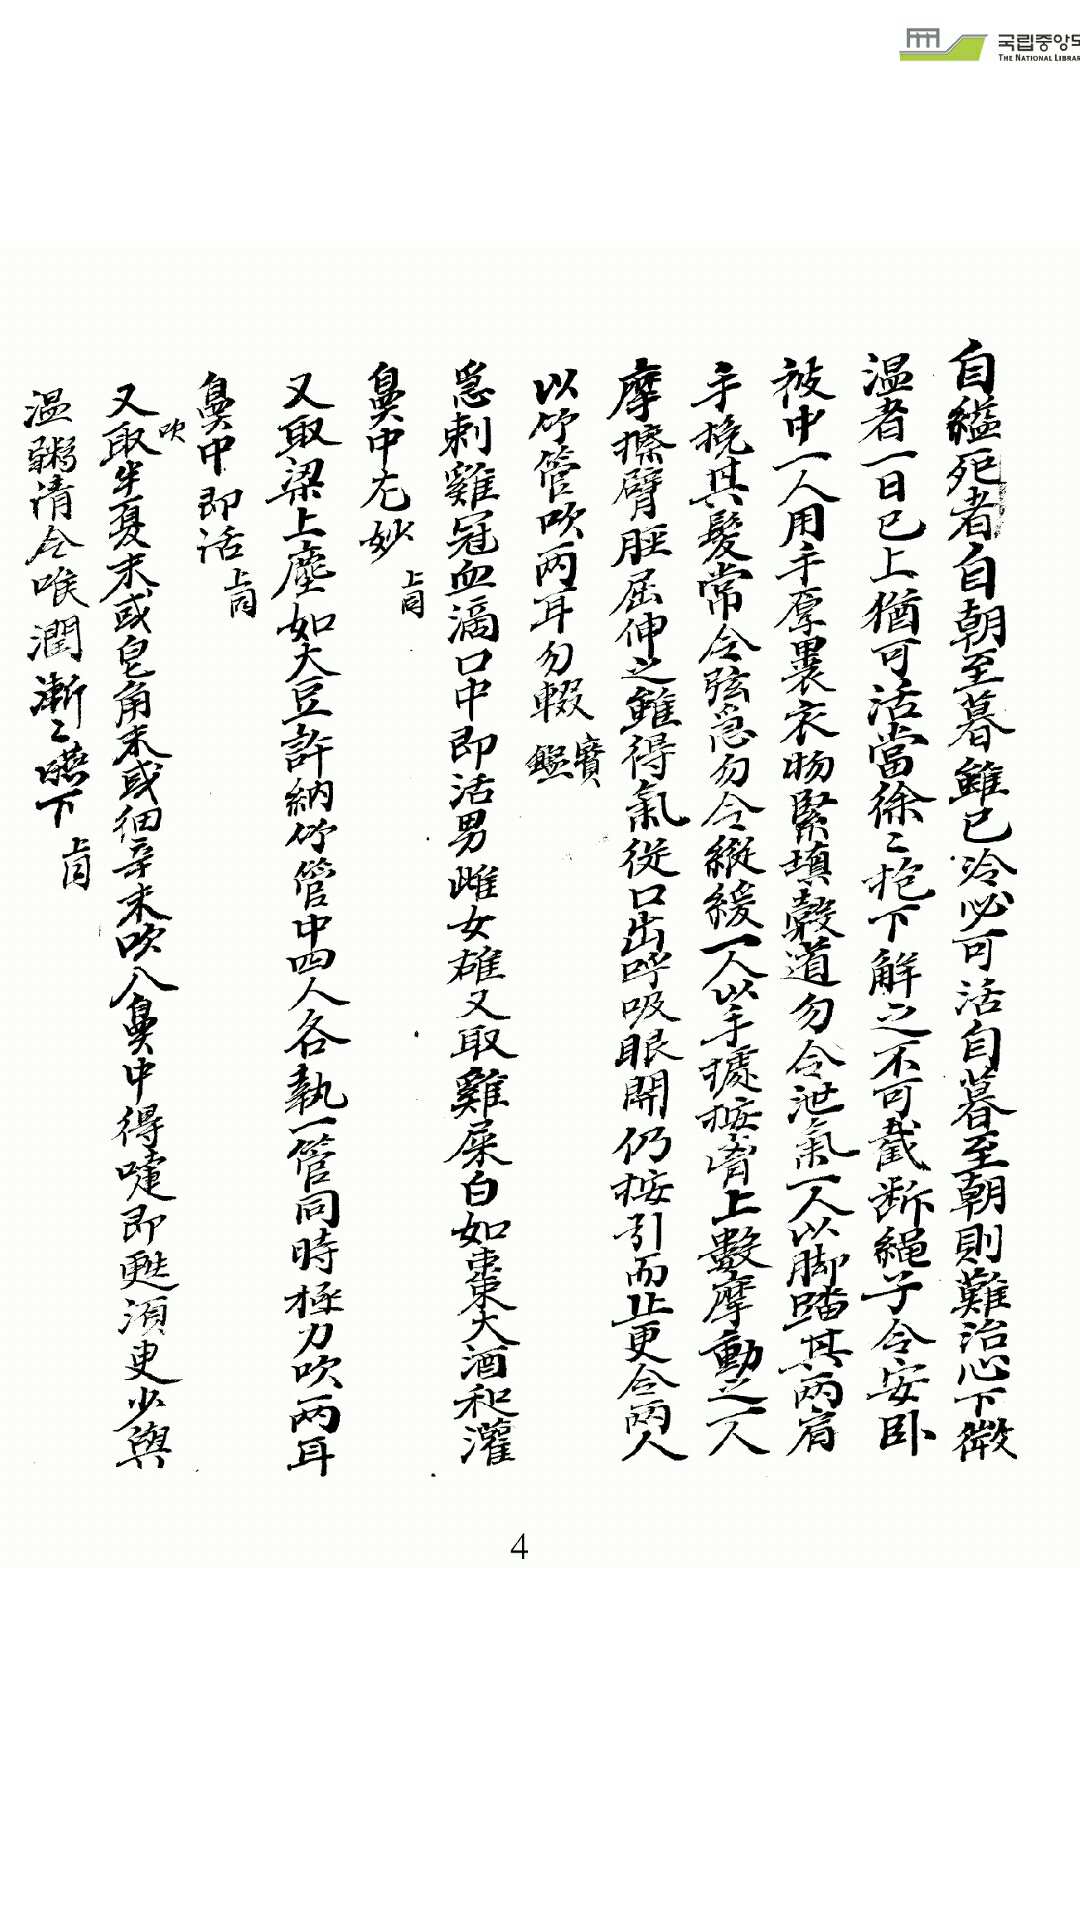 국립중앙도
THE NATIONAL LIBRAR
自縊死者自朝至暮雖已冷必可活自暮至朝則難治心下微
温者一日已上猶可活當徐〻抱下解之不可截断繩子令安卧
被中一人用手厚褁衣物緊填穀道勿令泄氣一人以脚踏其兩肩
手挽其髮常令弦急勿令縱緩一人以手據按胷上數摩動之一人
摩擦臂脛屈伸之雖得氣從口出呼吸眼開仍按引而止更令兩人
以竹管吹兩耳勿輟 寶鑑
急刺雞冠血滴口中即活男雌女雄又取雞屎白如棗大酒和灌
鼻中尤妙 上同
又取梁上塵如大豆許納竹管中四人各執一管同時極力吹兩耳
鼻中即活 上同
又取半夏末或皂角末或細辛末吹入鼻中得嚏即甦須臾少與
吹
温粥清令喉潤漸〻嚥下 上同
4